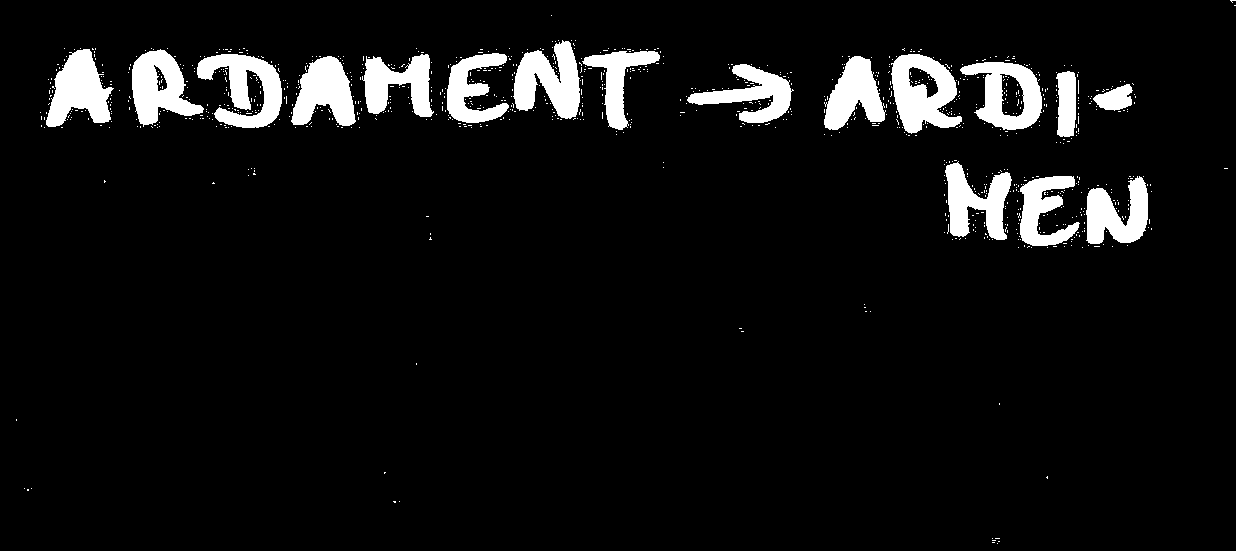 ARDAMENT → ARDI-
MEN